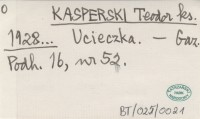 0
KASPERSKI Teodor ks.
1928... Ucieczka. — Gaz.
Podh. 16, nr 52.
BT/025/0021